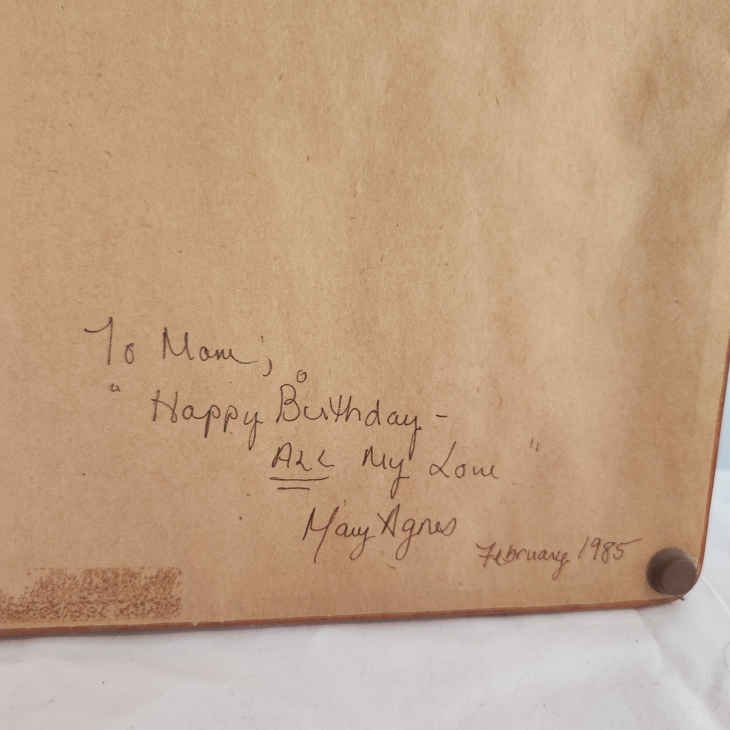 To Mom,
"Happy Birthday -
ALL My Love"
Mary Agnes
February 1985